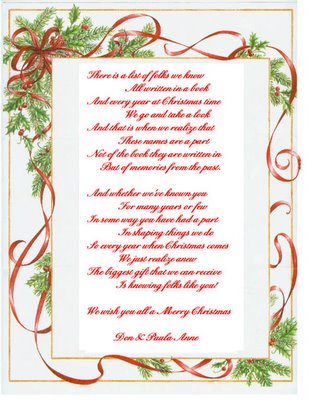 There is a list of folks we know
All written in a book
And every year at Christmas time
We go and take a look
And that is when we realize that
These names are a part
Not of the book they are written in
But of memories from the past.
And whether we've known you
For many years or few
In some way you have had a part
In shaping things we do
So every year when Christmas comes
We just realize anew
The biggest gift that we can receive
Is knowing folks like you!
We wish you all a Merry Christmas
Don & Paula Anne